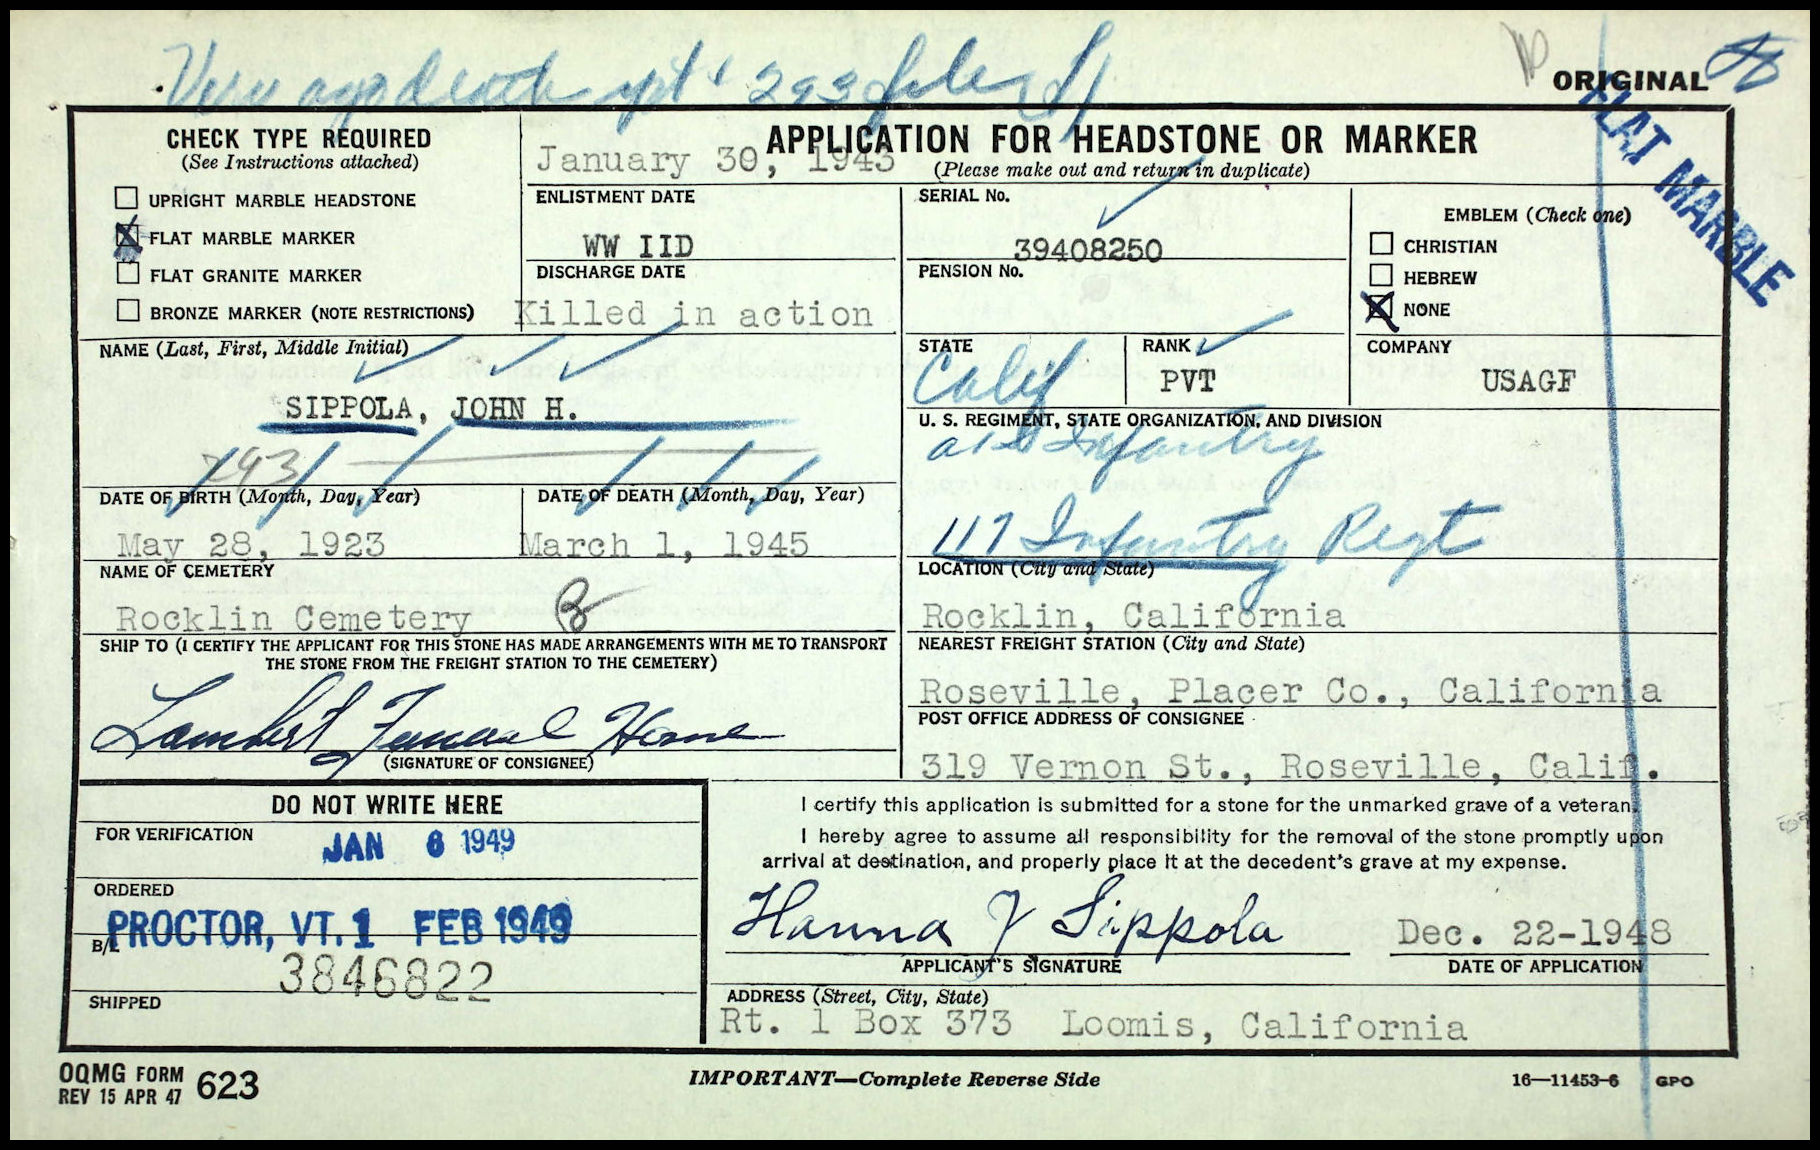 death rpt 293 file
ORIGINAL
FLAT MARBLE
CHECK TYPE REQUIRED
(See Instructions attached)
UPRIGHT MARBLE HEADSTONE
X FLAT MARBLE MARKER
FLAT GRANITE MARKER
BRONZE MARKER (NOTE RESTRICTIONS)
APPLICATION FOR HEADSTONE OR MARKER
(Please make out and return in duplicate)
January 30, 1943
ENLISTMENT DATE
WW IID
DISCHARGE DATE
Killed in action
SERIAL No.
39408250
PENSION No.
EMBLEM (Check one)
CHRISTIAN
HEBREW
X NONE
NAME (Last, First, Middle Initial)
SIPPOLA, JOHN H.
293
STATE
Calif
RANK
PVT
COMPANY
USAGF
U. S. REGIMENT, STATE ORGANIZATION, AND DIVISION
Infantry
117 Infantry Regt
DATE OF BIRTH (Month, Day, Year)
May 28, 1923
DATE OF DEATH (Month, Day, Year)
March 1, 1945
NAME OF CEMETERY
Rocklin Cemetery
LOCATION (City and State)
Rocklin, California
SHIP TO (I CERTIFY THE APPLICANT FOR THIS STONE HAS MADE ARRANGEMENTS WITH ME TO TRANSPORT
THE STONE FROM THE FREIGHT STATION TO THE CEMETERY)
Lambert Funeral Home
(SIGNATURE OF CONSIGNEE)
NEAREST FREIGHT STATION (City and State)
Roseville, Placer Co., California
POST OFFICE ADDRESS OF CONSIGNEE
319 Vernon St., Roseville, Calif.
DO NOT WRITE HERE
FOR VERIFICATION
JAN 6 1949
ORDERED
PROCTOR, VT. 1 FEB 1949
B/L
3846822
SHIPPED
I certify this application is submitted for a stone for the unmarked grave of a veteran.
I hereby agree to assume all responsibility for the removal of the stone promptly upon
arrival at destination, and properly place it at the decedent's grave at my expense.
Hanna J Sippola
APPLICANT'S SIGNATURE
Dec. 22-1948
DATE OF APPLICATION
ADDRESS (Street, City, State)
Rt. 1 Box 373 Loomis, California
OQMG FORM 623
REV 15 APR 47
IMPORTANT—Complete Reverse Side
16—11453-6 GPO